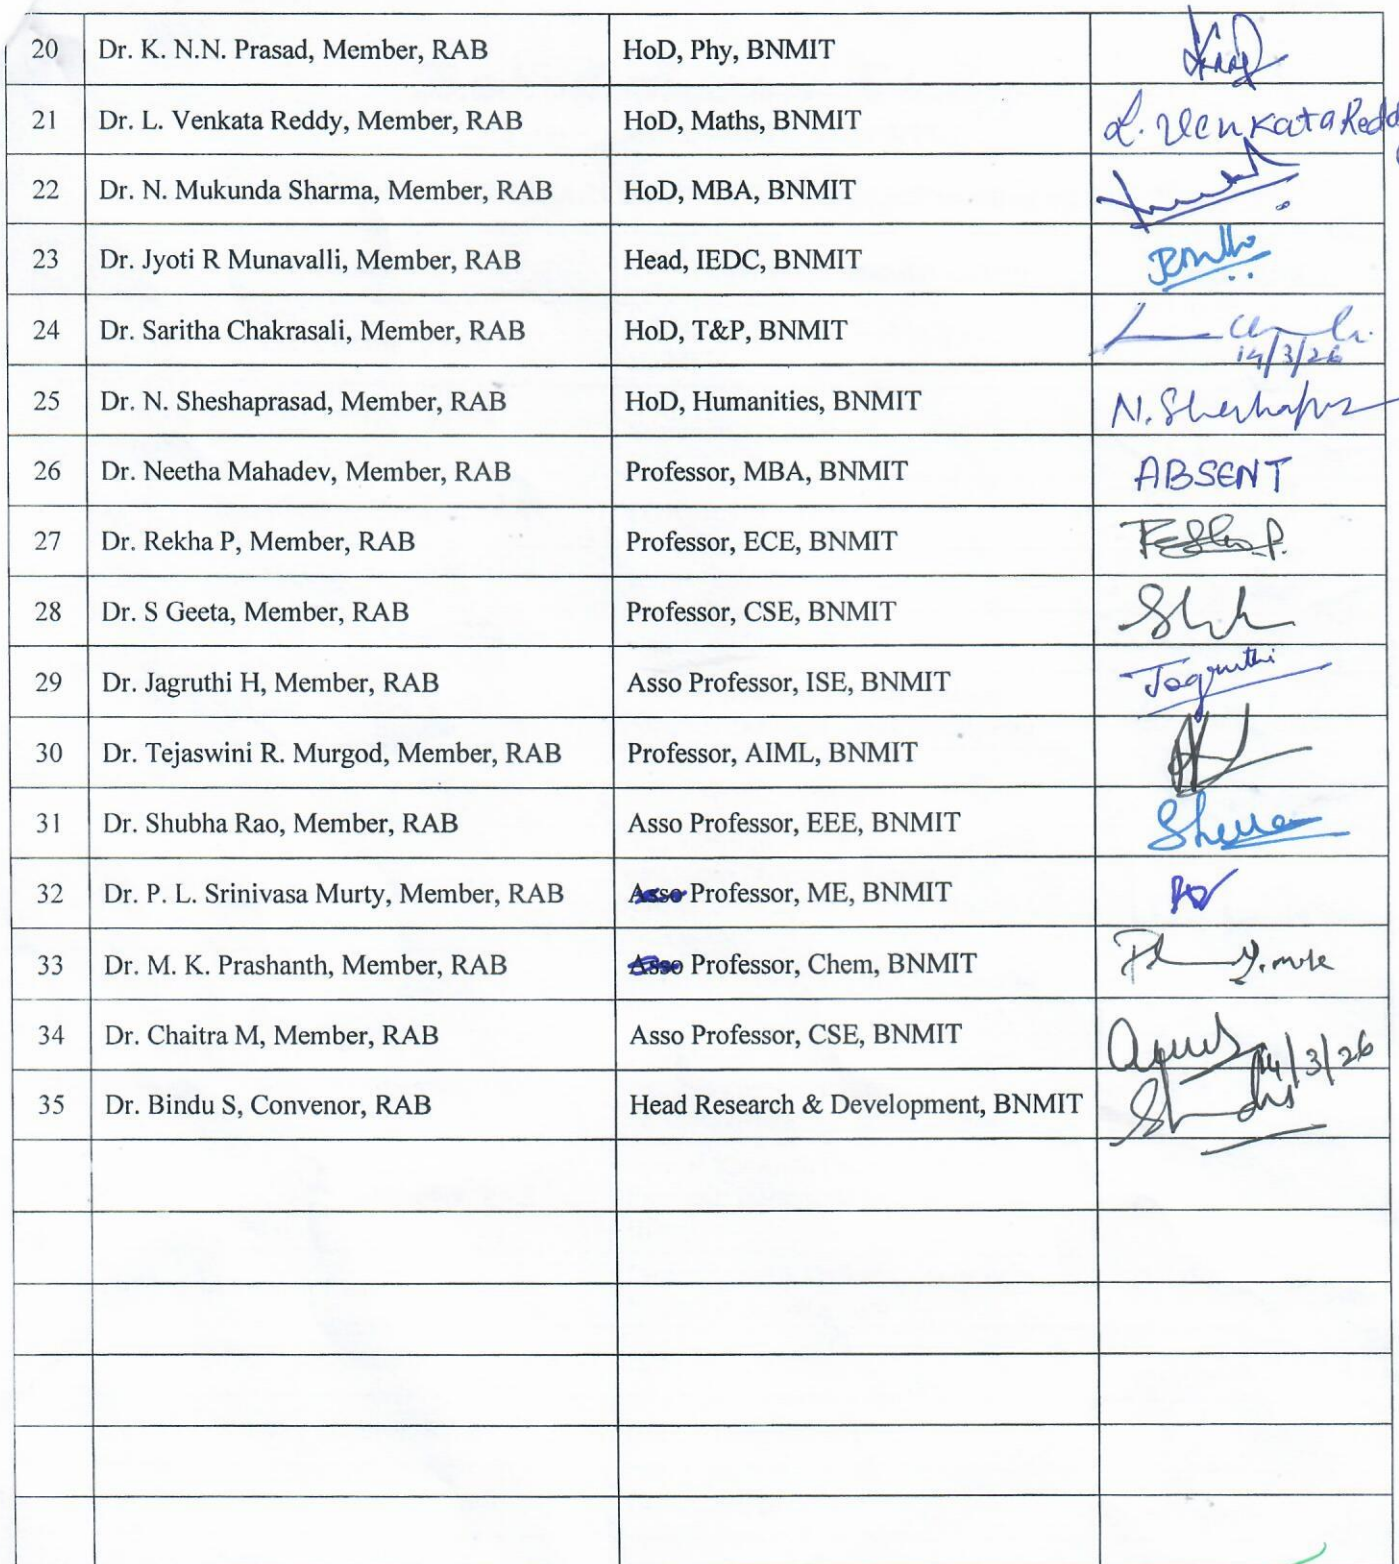 20 Dr. K. N.N. Prasad, Member, RAB HoD, Phy, BNMIT
21 Dr. L. Venkata Reddy, Member, RAB HoD, Maths, BNMIT L. Venkata Reddy
22 Dr. N. Mukunda Sharma, Member, RAB HoD, MBA, BNMIT
23 Dr. Jyoti R Munavalli, Member, RAB Head, IEDC, BNMIT
24 Dr. Saritha Chakrasali, Member, RAB HoD, T&P, BNMIT 14/3/26
25 Dr. N. Sheshaprasad, Member, RAB HoD, Humanities, BNMIT
26 Dr. Neetha Mahadev, Member, RAB Professor, MBA, BNMIT ABSENT
27 Dr. Rekha P, Member, RAB Professor, ECE, BNMIT
28 Dr. S Geeta, Member, RAB Professor, CSE, BNMIT
29 Dr. Jagruthi H, Member, RAB Asso Professor, ISE, BNMIT Jagruthi
30 Dr. Tejaswini R. Murgod, Member, RAB Professor, AIML, BNMIT
31 Dr. Shubha Rao, Member, RAB Asso Professor, EEE, BNMIT
32 Dr. P. L. Srinivasa Murty, Member, RAB Asso Professor, ME, BNMIT
33 Dr. M. K. Prashanth, Member, RAB Asso Professor, Chem, BNMIT
34 Dr. Chaitra M, Member, RAB Asso Professor, CSE, BNMIT 14/3/26
35 Dr. Bindu S, Convenor, RAB Head Research & Development, BNMIT